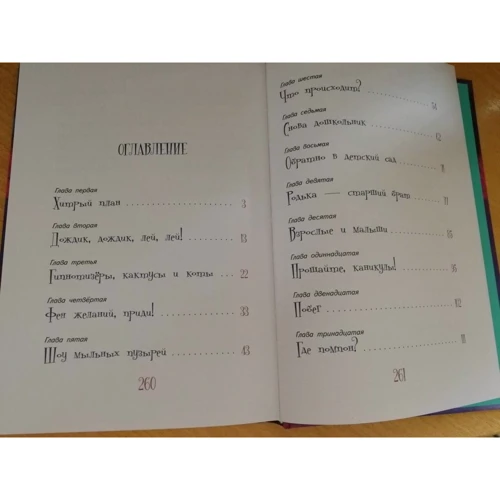 ОГЛАВЛЕНИЕ
Глава первая
Хитрый план 3
Глава вторая
Дождик, дождик, лей, лей! 13
Глава третья
Гипнотизёры, кактусы и коты 22
Глава четвёртая
Фен желаний, приди! 33
Глава пятая
Шоу мыльных пузырей 43
260
Глава шестая
Что происходит?
Глава седьмая
Снова дошкольник
Глава восьмая
Обратно в детский сад
Глава девятая
Родька — старший брат
Глава десятая
Взрослые и малыши
Глава одиннадцатая
Прощайте, каникулы!
Глава двенадцатая
Побег
Глава тринадцатая
Где помпон?
261